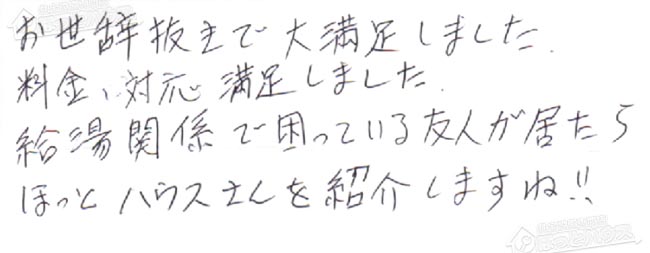 お世辞抜きで大満足しました.
料金、対応 満足しました.
給湯関係で困っている友人が居たら
ほっとハウスさんを紹介しますね!!